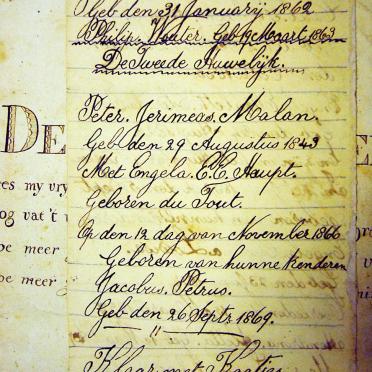 Geb den 31 Januarij 1862
Philip. Wouter. Geb 19 Maart 1863
De Tweede Huwelijk.
Peter. Jerimeas. Malan.
Geb den 29 Augustus 1843
Met Engela. E.E. Haupt.
Geboren du Tout.
Op den 12 dag van November 1866
Geboren van hunne Kenderen
Jacobus. Petrus.
Geb den 26 Septr 1869.
DE
es my vry
og vat't
oe meer
oe meer